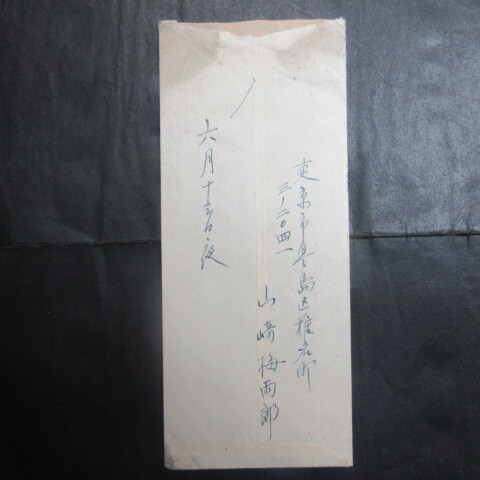 東京市豊島区椎名町
三ノ二〇四一
山崎梅雨郎
六月十三日夜